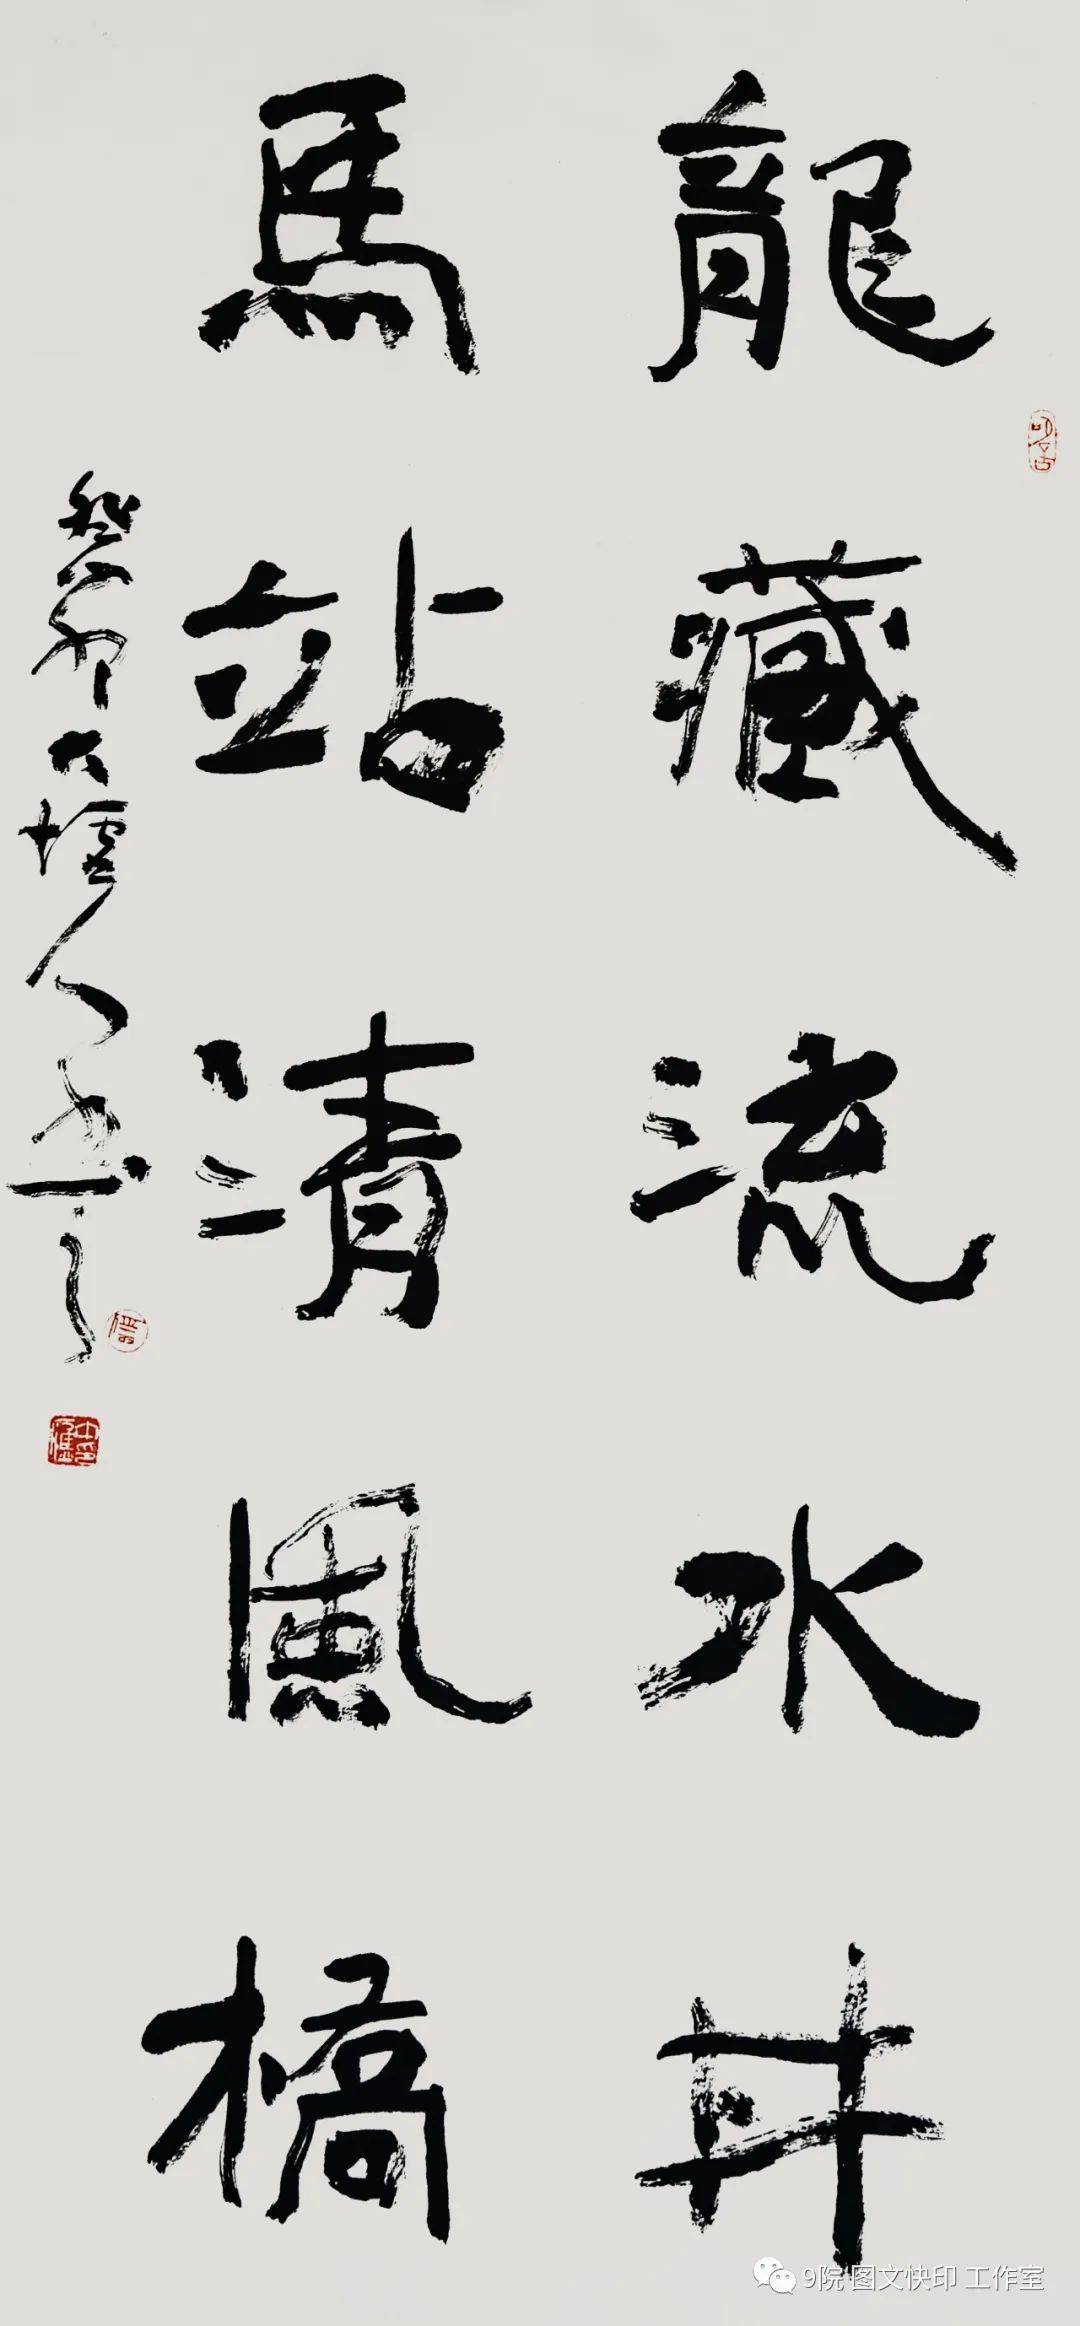 龍藏流水井
馬站清風橋
癸卯大墟人書
9院 图文快印 工作室